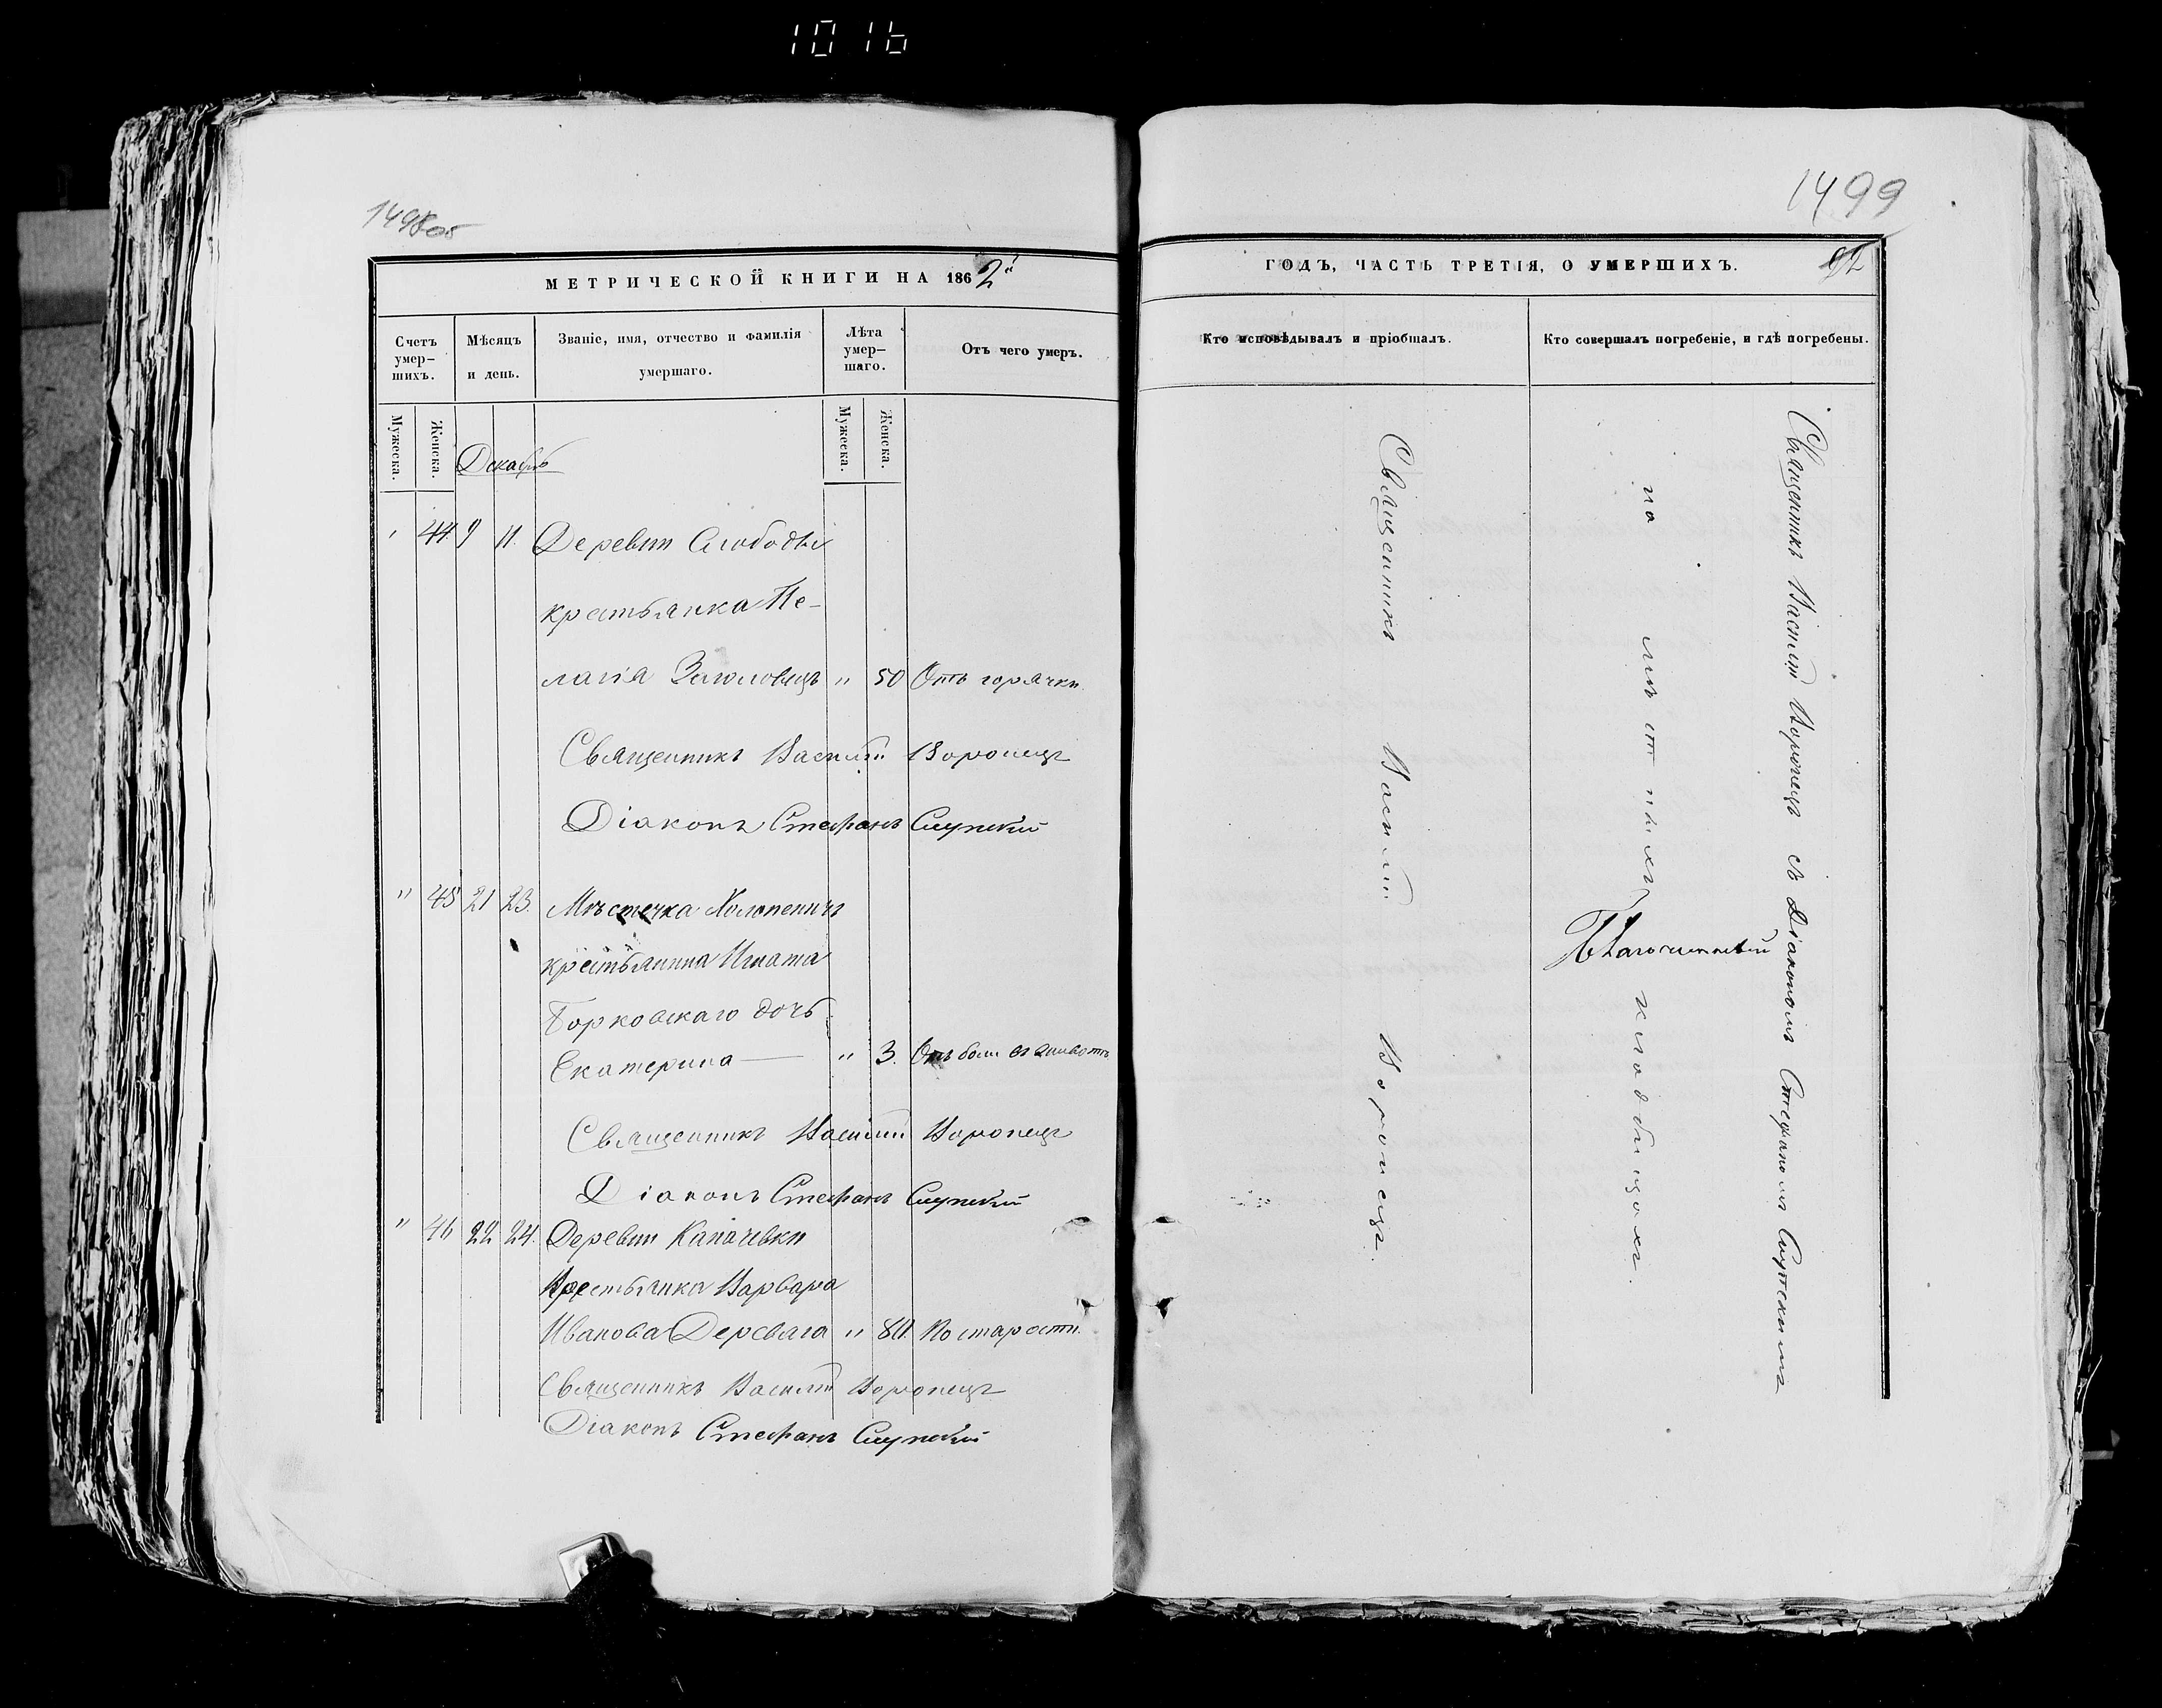 1016
1498об
МЕТРИЧЕСКОЙ КНИГИ НА 1862й
Счетъ умер-шихъ.
Мѣсяцъ и день.
Званіе, имя, отчество и фамилія умершаго.
Лѣта умер-шаго.
Отъ чего умеръ.
Мужеска.
Женска.
Декабрь
Мужеска.
Женска.
" 44 9 11. Деревни Слободы
крестьянка Пе-
лагія " 50 Отъ горячки.
Священникъ Василій Воронецъ
Діаконъ Стефанъ Слупскій
" 45 21 23. Мѣстечка Холопеничъ
крестьянина Игната
Борковскаго дочь
Екатерина — " 3. Отъ боли въ животѣ
Священникъ Василій Воронецъ
Діаконъ Стефанъ Слупскій
" 46 22 24. Деревни
Крестьянка Варвара
Иванова Деревяга " 80. По старости.
Священникъ Василій Воронецъ
Діаконъ Стефанъ Слупскій
1499
ГОДЪ, ЧАСТЬ ТРЕТІЯ, О УМЕРШИХЪ.
92
Кто исповѣдывалъ и пріобщалъ.
Кто совершалъ погребеніе, и гдѣ погребены.
Священникъ Василій Воронецъ.
Священникъ Василій Воронецъ съ Діакономъ Стефаномъ Слупскимъ
на мѣстныхъ кладбищахъ.
Благочинный